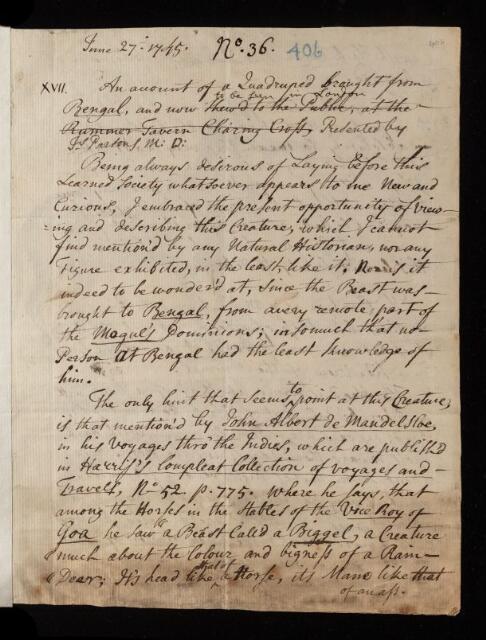 June 27. 1745. No. 36. 406
XVII. An account of a Quadruped brought from
to be seen in London
Bengal, and now shew'd to the Public, at the
Rummer Tavern Charing Cross, Presented by
Js Parsons M: D:
Being always desirous of Laying before this
Learned Society whatsoever appears to me New and
Curious, I embraced the present opportunity of view-
ing and describing this Creature, which I cannot
find mention'd by any Natural Historian, nor any
Figure exhibited, in the least, like it; Nor is it
indeed to be wonder'd at, since the Beast was
brought to Bengal, from a very remote part of
the Mogul's Dominions; insomuch that no
Person at Bengal had the least knowledge of
him.
to
The only hint that seems point at this Creature,
is that mention'd by John Albert de Mandelsloe,
in his Voyages thro' the Indies, which are publish'd
in Harris's Compleat Collection of Voyages and
Travels, No 52. p. 775. Where he says, that
among the Horses in the Stables of the Vice Roy of
Goa he saw a Beast Caled a Biggel, a Creature
much about the Colour and bigness of a Rain-
that of
Dear; It's head like a Horse, its Mane like that
of an ass.